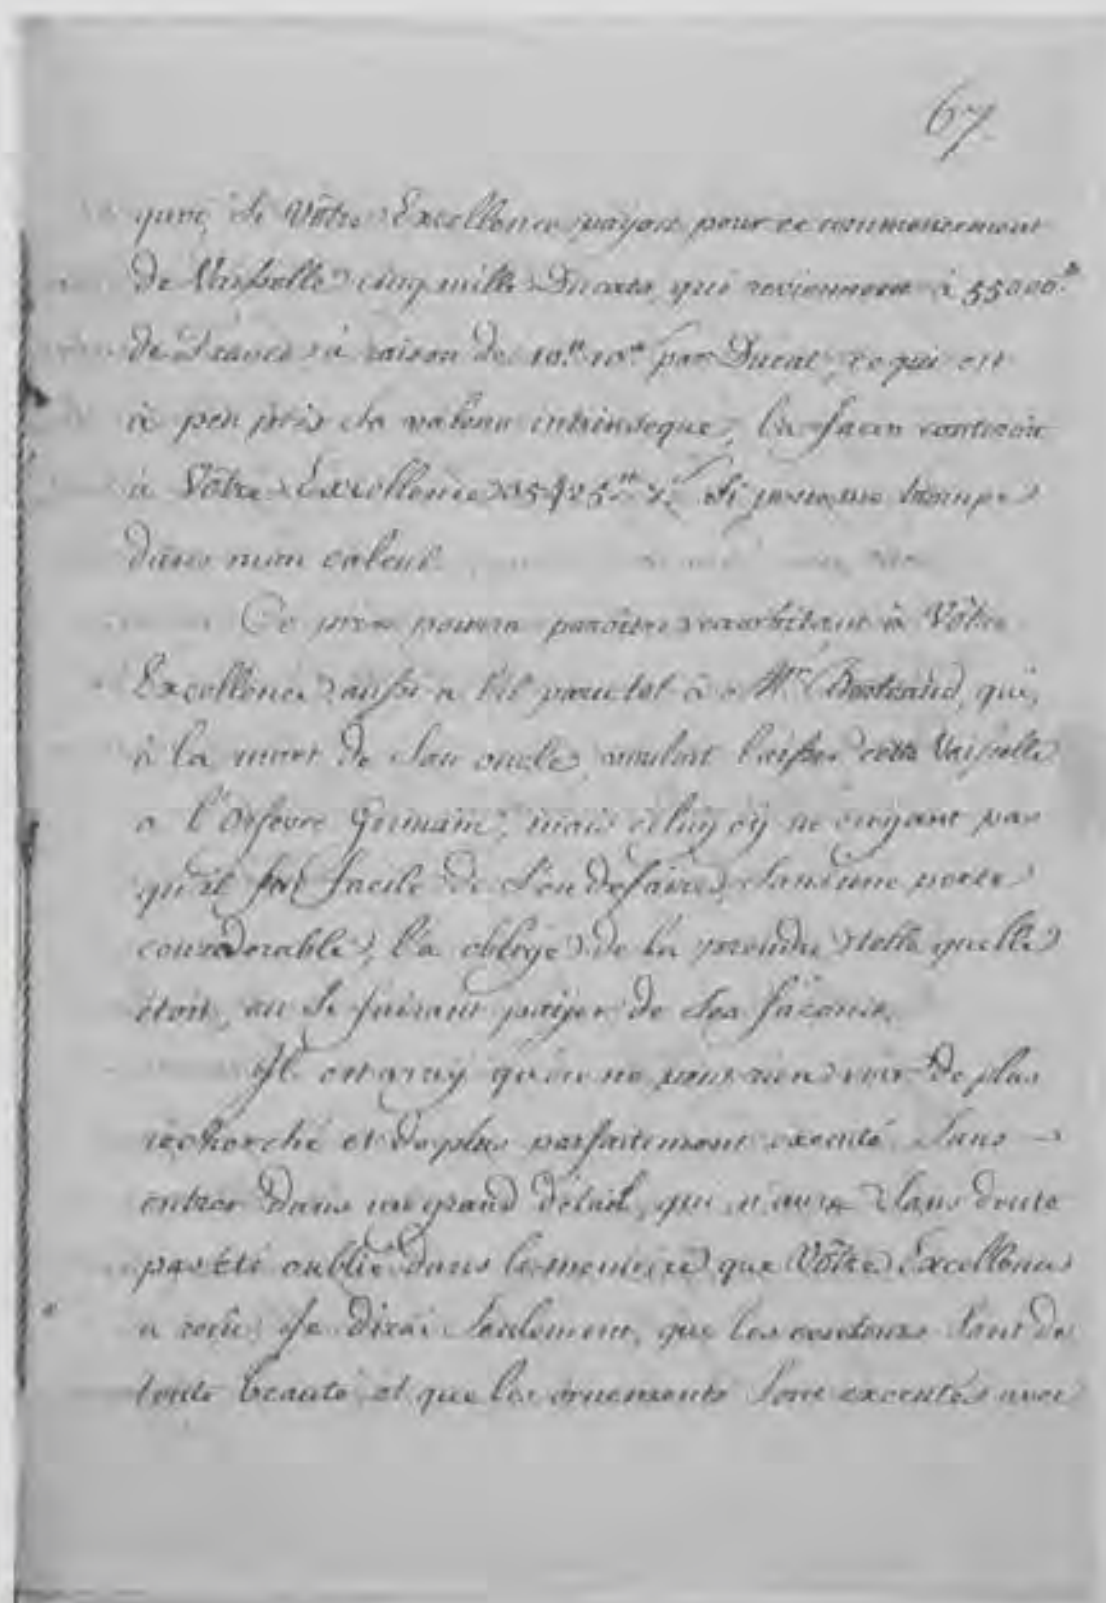 67
que, si Vôtre Excellence payoit pour ce commencement
de Vaisselle cinq mille Ducats, qui reviennent à 55000.#
de France à raison de par Ducat, ce qui est
à peu près la valeur intrinseque, la facon couteroit
à Vôtre Excellence si je ne me trompe
dans mon calcul.
Ce prix pourra paroitre exorbitant à Vôtre
Excellence, aussi a t'il paru tel à Mr. Bertrand, qui,
à la mort de son oncle, voulut laisser cette Vaisselle
a l'Orfevre Germain, mais celuy cy ne croyant pas
qu'il fut facile de s'en defaire, sans une perte
considerable, l'a obligé de la prendre telle quelle
étoit, en se faisant payer de ses facons.
Il est vray qu'on ne peut rien voir de plus
recherché et de plus parfaitement executé. Sans
entrer dans un grand détail, qui n'aura sans doute
pas été oublié dans le memoire que Vôtre Excellence
a reçu, Je dirai seulement, que les contours sont de
toute beauté, et que les ornements sont executés avec